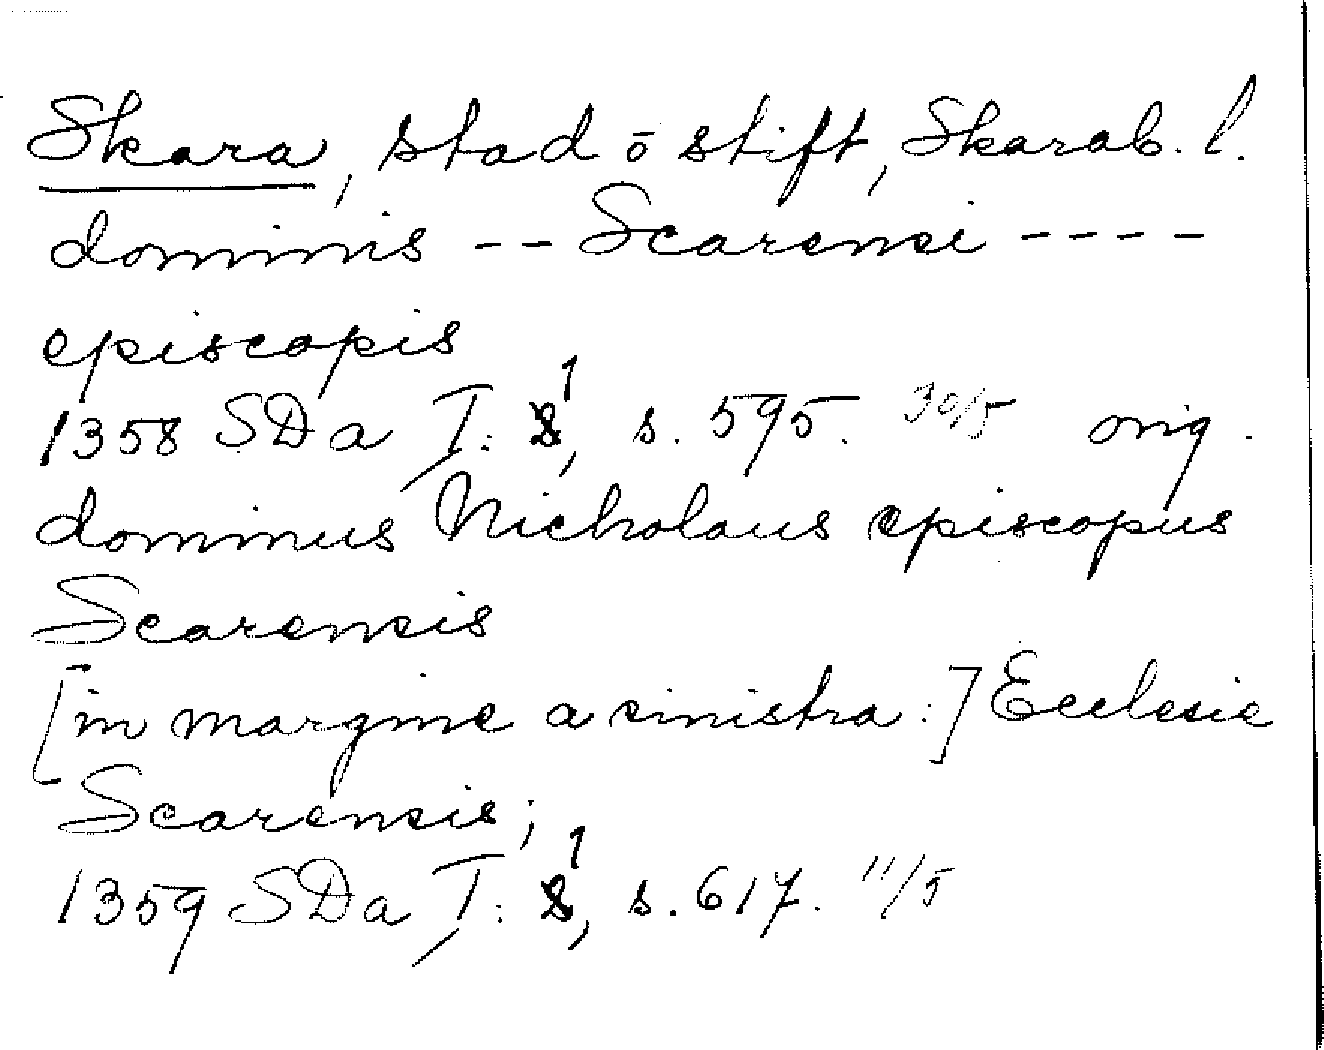 Skara, stad o stift, Skarab. l.
dominis -- Scarensi ----
episcopis
1358 SDa I: 1, s. 595. 30/5 orig.
dominus Nicholaus episcopus
Scarensis
[in margine a sinistra:] Ecclesie
Scarensis;
1359 SDa I: 1, s. 617. 11/5